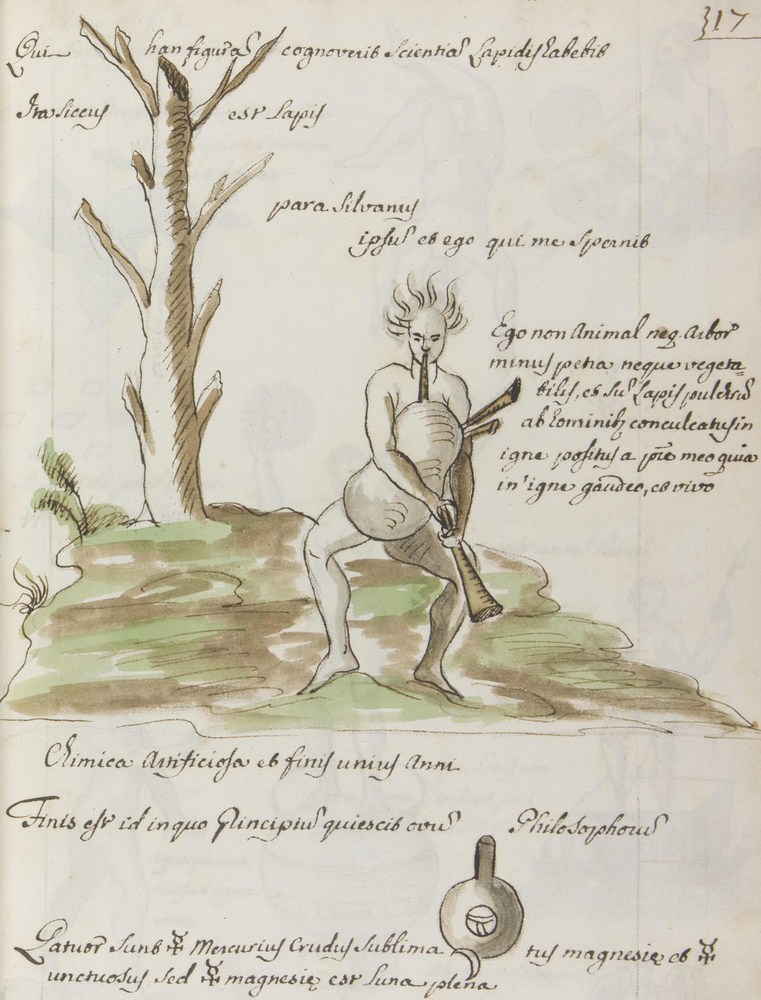 317
Qui han figura̅ cognoverit Scientia̅ Lapidis habebit
Ita siccus est Lapis
para Silvanus
ipsu̅ et ego qui me Spernit
Ego non Animal neq. Arbor
minus petra neque vegeta=
bilis, et su̅ Lapis pulchru̅
ab hominib conculcatus in
igne positus a pr̅e meo quia
in igne gaudeo, et vivo
Chimica Artificiosa et finis unius Anni
Finis est id in quo Principiu̅ quiescit ovu̅ Philosophoru̅
Quatuor Sunt ☿ Mercurius Crudus Sublima tus magnesię et ☿
unctuosus Sed ☿ magnesię est Luna plena